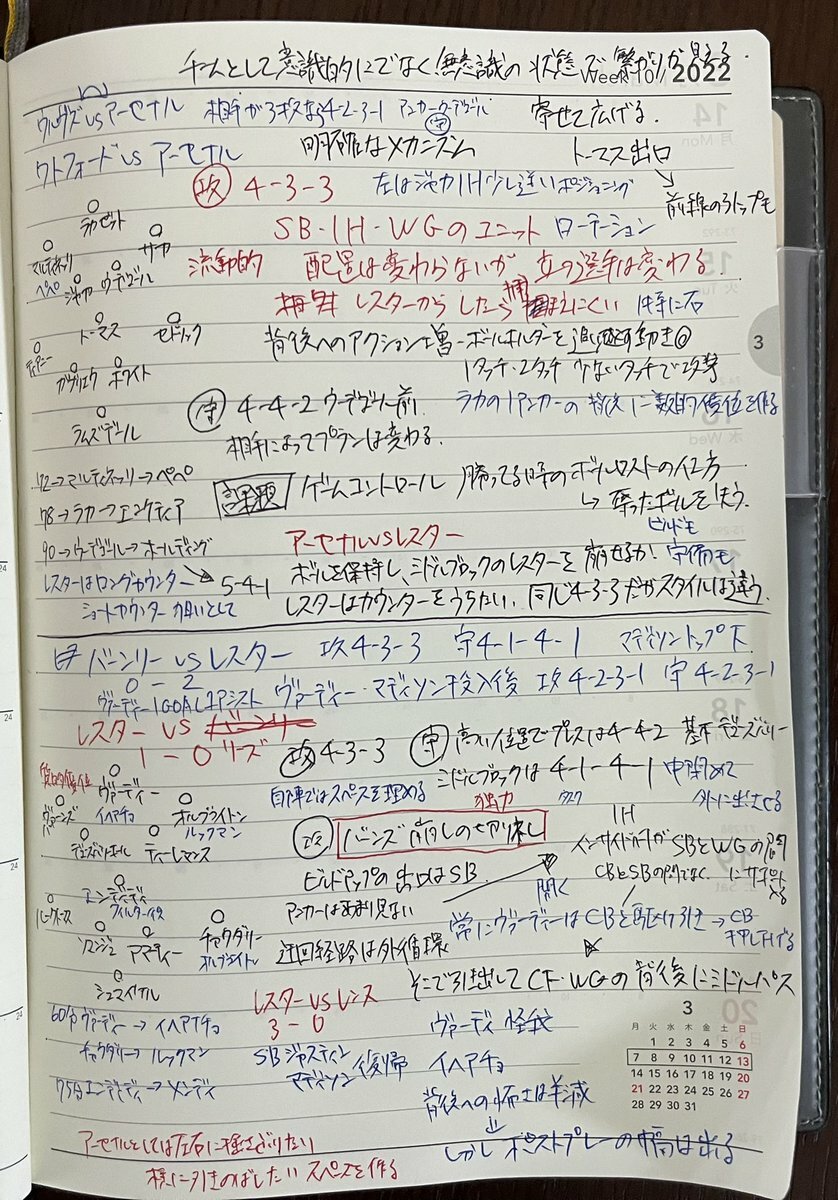 チームとして意識的にでなく無意識の状態で繋がりが見える
Week 10 // 2022
ウルヴズ vs アーセナル 相手が3枚なら4-2-3-1 アンカーウーデゴール 守 寄せて広げる。
ワトフォード vs アーセナル 明確なメカニズム トーマス出口
攻 4-3-3 左はジャカIH少し違いポジショニング 前線の3トップも
ラカゼット
SB・IH・WGのユニット ローテーション
マルティネッリ サカ
ペペ ジャカ ウーデゴール 流動的 配置は変わらないが 立つ選手は変わる。
レスターからしたら 捕まえにくい 特に右
トーマス セドリック 背後へのアクション増→ボールホルダーを追い越す動き◎
ティアニー 1タッチ・2タッチ 少ないタッチで攻撃
ガブリエウ ホワイト
守 4-4-2 ウーデゴール前 ラカの1アンカーの背後に数的優位を作る
ラムズデール 相手によってプランは変わる。
72→マルティネッリ→ペペ 課題 ゲームコントロール 勝ってる時のボールロストの仕方
78→ラカ→エンケティア → 奪ったボールを失う。
アーセナル vs レスター ビルドも
90→ウーデゴール→ホールディング
ボールを保持し、ミドルブロックのレスターを崩せるか! 守備も
レスターはロングカウンター 5-4-1
ショートカウンター 狙いとして レスターはカウンターをうちたい、同じ4-3-3だがスタイルは違う。
バーンリー vs レスター 攻4-3-3 守4-1-4-1 マディソントップ下
0-2
ヴァーディー1GOAL1アシスト ヴァーディー・マディソン投入後 攻4-2-3-1 守4-2-3-1
レスター vs
1-0 リーズ 攻 4-3-3 守 高い位置でプレスは4-4-2 基本デューズバリー
質的優位 ヴァーディー ミドルブロックは4-1-4-1 中閉めて
バーンズ イヘアチョ オルブライトン 自陣ではスペースを埋める 外に出させる
ルックマン 独力 タスク
デューズバリーホール ティーレマンス 攻 バーンズ崩しの切り札 IH
インサイドハーフがSBとWGの間
ビルドアップの出口はSB CBとSBの間でなく にサポート入る
エンディディ 開く
アンカーはあまり見ない
常にヴァーディーはCBと駆け引き→CB押し下げる
ソユンジュ アマーティー チャウダリー 迂回経路は外循環
オルブライトン
シュマイケル そこで引き出して CF・WGの背後にミドルパス
60分ヴァーディー→イヘアチョ レスター vs レンヌ ヴァーディ 怪我
3-0
チャウダリー→ルックマン SB ジャスティン 復帰 イヘアチョ
マディソン
75分エンディディ→メンディ 背後への怖さは半減
しかし ポストプレーの幅は出る
アーセナルとしては左右に揺さぶりたい
横に引きのばしたい スペースを作る
3
3
月 火 水 木 金 土 日
1 2 3 4 5 6
7 8 9 10 11 12 13
14 15 16 17 18 19 20
21 22 23 24 25 26 27
28 29 30 31